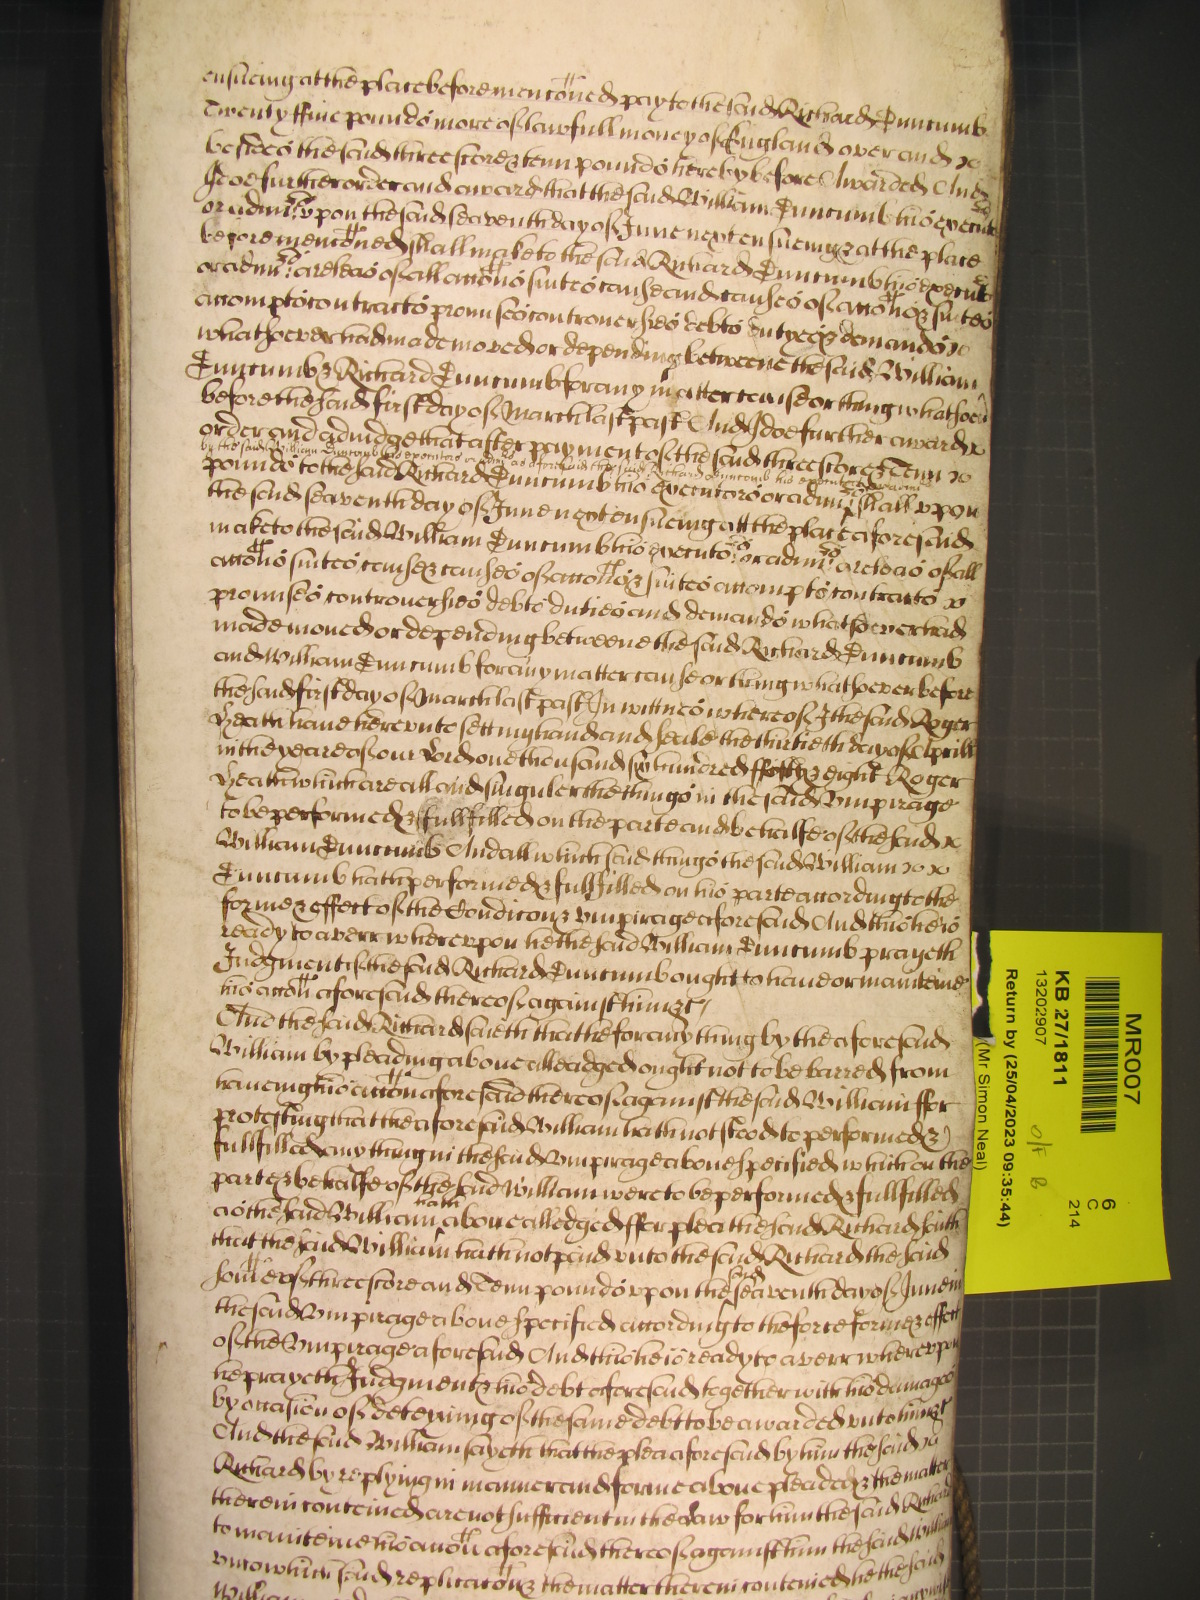 ensueing at the place before mencõned pay to the said Richard Duncumb
Twenty ffive pounds more of lawfull money of England over and
besides the said threescore & tenn pounds hereby before Awarded And
I doe further order and award that the said William Duncumb his execut
or admrs upon the said seaventh day of June next ensueing & at the place
before mencõned shall make to the said Richard Duncumb his execut
or admrs a releas of all accõns suites cause and causes of accõns & suites
accompts contracts promises controversies debts dutyes & demands
whatsoever had made moved or depending betweene the said William
Duncumb & Richard Duncumb for any matter cause or thing whatsoev
before the said first day of March last past And I doe further award
order and adiudge that after payment of the said threescore & Tenn
by the said William Duncumb his executors or admrs as aforesaid the said Richard Duncumb his executors or admrs
pounds to the said Richard Duncumb his Executors or admrs shall upon
the said seaventh day of June next ensueing att the place aforesaid
make to the said William Duncumb his executors or admrs a releas of all
accõns suites causes & causes of accõns & suites accompts contracts
promises controversies debts duties and demands whatsoever had
made moved or depending betweene the said Richard Duncumb
and William Duncumb for any matter cause or thing whatsoever before
the said first day of March last past In wittnes whereof I the said Roger
Heath have hereunto sett my hand and seale the thirtieth day of Aprill
in the yeare of our Lord one thousand six hundred ffifty & eight Roger
Heath which are all and singuler the things in the said Umpirage
to be performed & fullfilled on the parte and behalfe of the said
William Duncumb And all which said things the said William
Duncumb hath performed & fullfilled on his parte according to the
forme & effect of the Condicon & umpirage aforesaid And this he is
ready to averr whereupon he the said William Duncumb prayeth
Judgment if the said Richard Duncumb ought to have or mainteine
his accõn aforesaid thereof against him &c
And the said Richard saieth that he for any thing by the aforesaid
William by pleading above alleadged ought not to be barred from
haveing his accõn aforesaid thereof against the said William ffor
protesting that the aforesaid William hath not stood to performed &
fullfilled any thing in the said Umpirage above specified which on the
parte & behalfe of the said William were to be performed & fullfilled
as the said William hath above alledged ffor plea the said Richard saith
that the said William hath not paid unto the said Richard the said
som̃e of threescore and Tenn pounds upon the said seaventh day of June in
the said Umpirage above specified according to the force forme & effect
of the Umpirage aforesaid And this he is ready to averr whereupon
he prayeth Judgment & his debt aforesaid together with his damages
by occasion of deteyning of the same debt to be awarded unto him &c
And the said William sayeth that the plea aforesaid by him the said
Richard by replying in manner and forme above pleaded & the matter
therein conteined are not sufficient in the Law for him the said Richard
to mainteine his accõn aforesaid thereof against him the said William
unto which said replicacõn & the matter therein conteined he the said
William
MR007
6
C
214
KB 27/1811
13202907
Return by (25/04/2023 09:35:44)
(Mr Simon Neal)